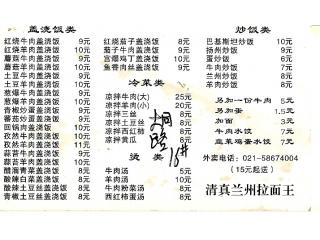 盖浇饭类
红烧牛肉盖浇饭 9元
红烧羊肉盖浇饭 10元
蘑菇牛肉盖浇饭 9元
蘑菇羊肉盖浇饭 10元
土豆牛肉盖浇饭 9元
土豆羊肉盖浇饭 10元
葱爆牛肉盖浇饭 9元
葱爆羊肉盖浇饭 10元
青椒炒蛋盖浇饭 8元
蕃茄炒蛋盖浇饭 8元
回锅牛肉盖浇饭 9元
孜然牛肉盖浇饭 10元
孜然羊肉盖浇饭 11元
蒜苔牛肉盖浇饭 9元
蒜苔羊肉盖浇饭 10元
醋溜青菜盖浇饭 7元
酸辣白菜盖浇饭 7元
酸辣土豆丝盖浇饭 7元
青椒土豆丝盖浇饭 7元
红烧茄子盖浇饭 8元
茄子牛肉盖浇饭 9元
宫爆鸡丁盖浇饭 9元
鱼香肉丝盖浇饭 9元
冷菜类
凉拌牛肉(大) 25元
凉拌牛肉(小) 20元
凉拌三丝
凉拌土豆丝
凉拌
凉拌黄瓜
汤类
牛肉汤 5元
羊肉汤
牛肉粉菜汤 8元
西红柿蛋汤 8元
炒饭类
巴基斯坦炒饭 10元
扬州炒饭 9元
蛋炒饭 6元
牛肉炒饭 9元
兰州炒饭 8元
羊肉炒饭 10元
另加一份牛肉 5元
另加蛋 1.5元
加面 3元
牛肉水饺 7元
韭菜鸡蛋水饺 7元
外卖电话：021-58674004
(15元起送)
清真兰州拉面王